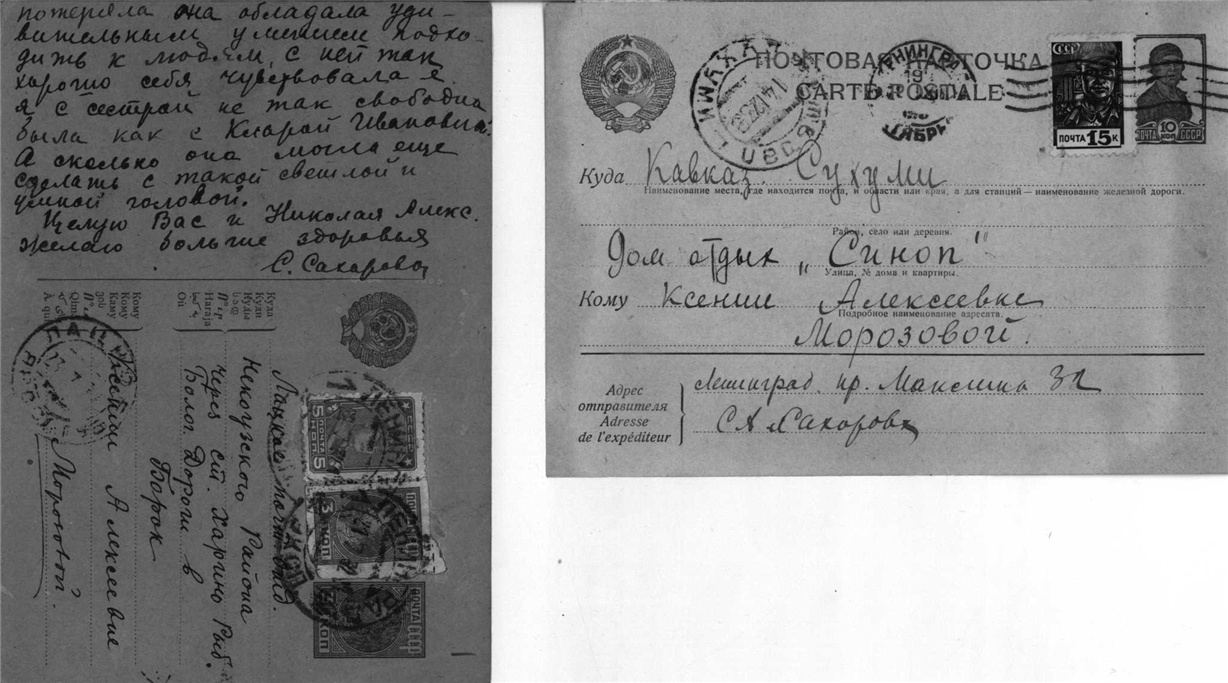 потеряла она обладала уди-
вительным умением подхо-
дить к людям, с ней так
хорошо себя чувствовала я.
я с сестрой не так свободна
была как с Кларой Ивановной.
А сколько она могла еще
сделать с такой светлой и
умной головой.
Целую Вас и Николая Алекс.
желаю больше здоровья
С. Сахарова
Куда
Лацкое почт. отд.
Некоузского Района
через ст. Харино Рыб.
Болог. Дороги в
Борок
Кому
Ксении Алексеевне
Морозовой.
ПОЧТА СССР
5 КОП
5 ПОЧТА 5
3 КОП
ЛЕНИНГРАД
ПОЧТОВАЯ КАРТОЧКА
CARTE POSTALE
СССР
ПОЧТА 15 К
10 КОП
ПОЧТА СССР
СУХУМИ
ЛЕНИНГРАД
Куда Кавказ. Сухуми
Наименование места, где находится почта, и области или края, а для станций — наименование железной дороги.
Район, село или деревня.
Дом отдых „Синоп"
Улица, № дома и квартиры.
Кому Ксении Алексеевне
Подробное наименование адресата.
Морозовой.
Адрес
отправителя
Adresse
de l'expéditeur
Ленинград. пр. Маклина 32
СА Сахарова